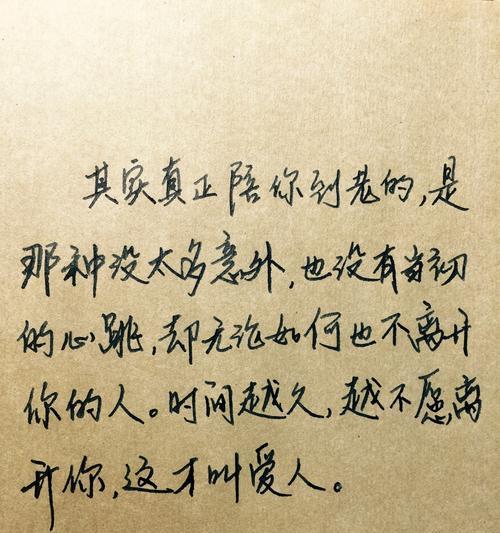 其实真正陪你到老的，是
那种没太多意外，也没有当初
的心跳，却无论如何也不离开
你的人。时间越久，越不愿离
开你，这才叫爱人。